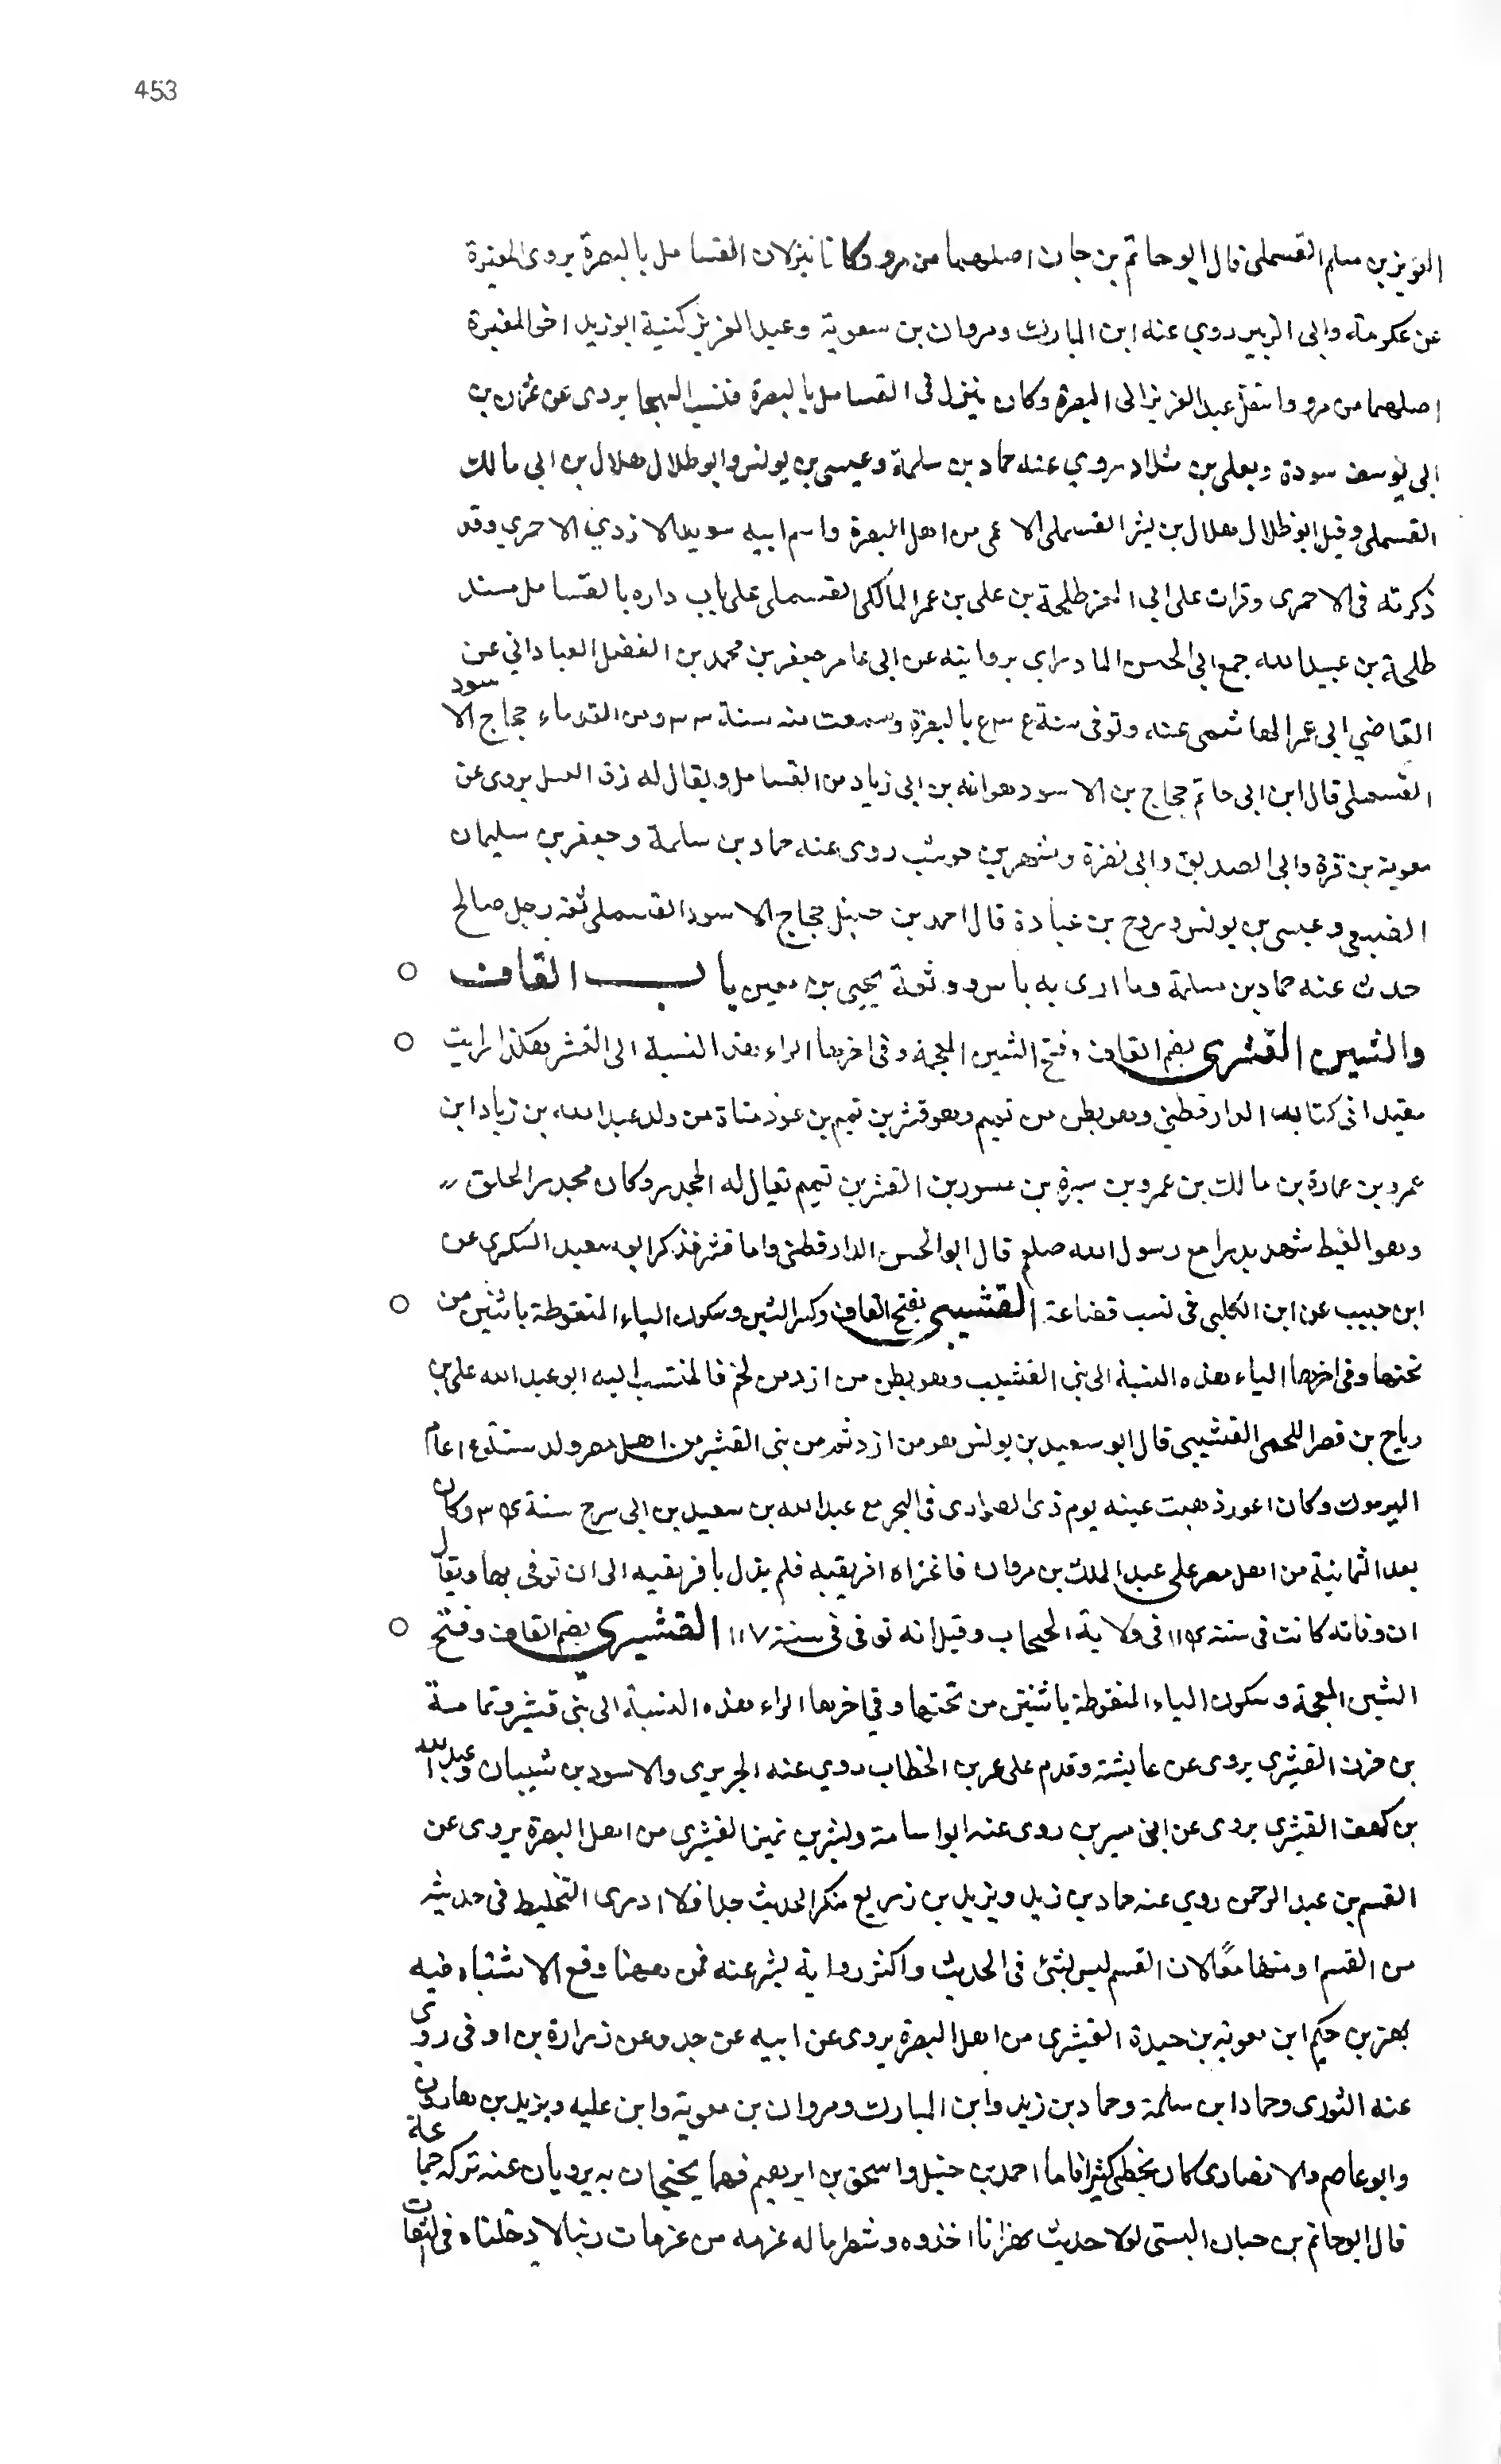 453
العزيز بن مسلم القسملى قال ابو حاتم بن حبان اصلهما من مرو وكانا ينزلان القسامل بالبصرة يروى المغيرة
عن عكرمة وابى الزبير روي عنه ابن المبارك ومروان بن معوية وعبد العزيز كنية ابو زيد اخو المغيرة
اصلهما من مرو وانتقل عبد العزيز الى البصرة وكان ينزل فى القسامل بالبصرة فنسب اليهما يروى عن
ابى يوسف سودة ويعلى بن شداد روي عنه حماد بن سلمة وعيسى بن يونس وابو ظلال هلال بن ابى مالك
القسملى وقيل ابو ظلال هلال بن بشر القسملى الاعمى من اهل البصرة واسم ابيه سويد الازدي الاحمري وقد
ذكرته فى الاحمرى وقرات على ابى المعز طلحة بن على بن عمر المالكى القسملى على باب داره بالقسامل مسند
طلحة بن عبيد الله جمع ابى الحسن المادراى بروايته عن ابى عامر جعفر بن محمد بن الفضل العباداني عن
القاضي ابى عمر الهاشمى عنه وتوفى سنة بالبصرة وسمعت منه سنة ومن القدماء حجاج الاسود
القسملى قال ابن ابى حاتم حجاج بن الاسود هو انه بن ابى زياد من القسامل ويقال له زق العسل يروى عن
معوية بن قرة وابى الصديق وابى نضرة وشهر بن حوشب روى عنه حماد بن سلمة وجعفر بن سليمان
الضبعى وعيسى بن يونس وروح بن عبادة قال احمد بن حنبل حجاج الاسود القسملى ثقة رجل صالح
حدث عنه حماد بن سلمة وما ارى به باس ووثقة يحيى بن معين باب القاف
والشين القشرى بضم القاف وفتح الشين المعجمة وفى اخرها الراء هذه النسبة الى القشر هكذا رايت
مقيدا فى كتاب الدارقطني وهو بطن من تميم وهو قشر بن تميم بن عوذ مناة من ولد عبد الله بن زياد ابن
عمرو بن عمارة بن مالك بن عمرو بن سيرة بن مسور بن القشر بن تميم يقال له المجدر وكان مجدر الخلق
وهو الغيط شهد بدرا مع رسول الله صلع قال ابو الحسن الدارقطنى واما قشر فذكر ابو سعيد السكرى عن
ابن حبيب عن ابن الكلبى فى نسب قضاعة القشيبى بفتح القاف وكسر الشين وسكون الياء المنقوطة باثنين من
تحتها وفى اخرها الباء هذه النسبة الى بنى القشيب وهو بطن من ازد من لخم فالمنتسب اليه ابو عبد الله على بن
رباح بن قصر اللخمى القشيبى قال ابو سعيد بن يونس هو من ازد ثم من بنى القشير من اهل مصر ولد سنة عام
اليرموك وكان اعور ذهبت عينه يوم ذى الصوارى فى البحر مع عبد الله بن سعيد بن ابى سرح سنة وكان
بعد الثمانية من اهل مصر على عبد الملك بن مروان فاغزاه افريقية فلم يزل بافريقيه الى ان توفى بها ويقال
ان وفاته كانت فى سنة فى ولاية الحبحاب وقيل انه توفى فى سنة ١١٧ القشيرى بضم القاف وفتح
الشين المعجمة وسكون الياء المنقوطة باثنتين من تحتها وفي اخرها الراء هذه النسبة الى بنى قشير وثمامسة
بن حزن القشيرى يروى عن عايشة وقدم على عمر بن الخطاب روي عنه الجريرى والاسود بن شيبان وعبد الله
بن كهف القشيرى يروى عن ابن سيرين روى عنه ابو اسامة وبشر بن نمير القشيرى من اهل البصرة يروى عن
القسم بن عبد الرحمن روي عنه حماد بن زيد ويزيد بن زريع منكر الحديث جدا فلا ادرى التخليط فى حديثه
من القسم او منهما معًا لان القسم ليس بشئ فى الحديث واكثر رواية بشر عنه فمن ههنا وقع الاشتباه فيه
بهز بن حكيم ابن معوية بن حيدة القشيرى من اهل البصرة يروى عن ابيه عن جده وعن زرارة بن اوفى روى
عنه الثورى وحماد ابن سلمة وحماد بن زيد وابن المبارك ومروان بن معوية وابن علية ويزيد بن هارون
وابو عاصم والانصارى كان يخطى كثيرا فاما احمد بن حنبل واسحق بن ابرهيم فهما يحتجان به يرويان عنه تركه جماعة
قال ابو حاتم بن حبان البستى لولا حديث بهز انا اخذوه وشطر ماله عزمه من عزمات ربنا لادخلناه فى الثقات